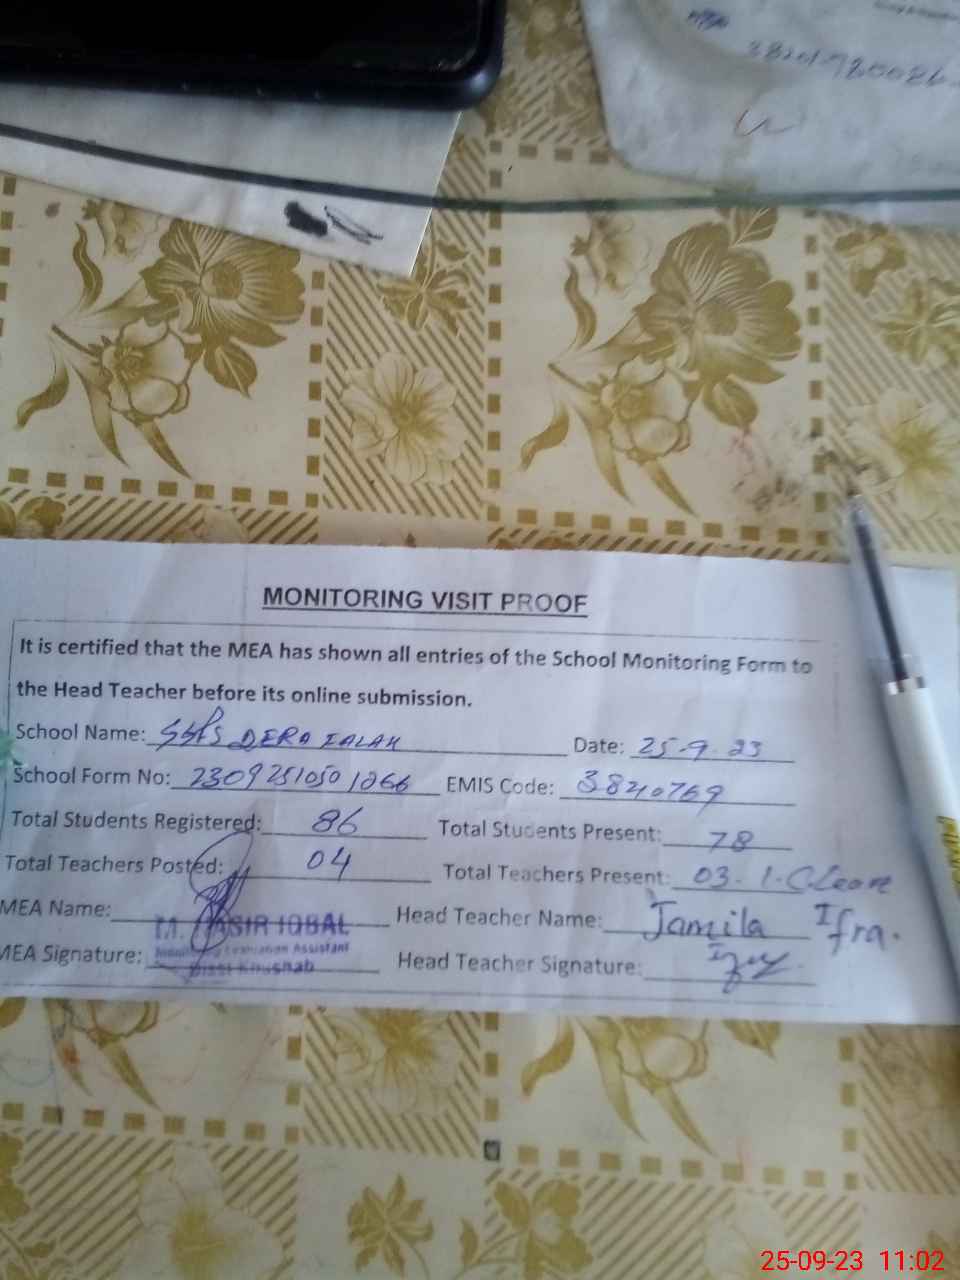 MONITORING VISIT PROOF
It is certified that the MEA has shown all entries of the School Monitoring Form to
the Head Teacher before its online submission.
School Name: DERA Date: 25-9-23
School Form No: 23092510501266 EMIS Code: 38210769
Total Students Registered: 86 Total Students Present: 78
Total Teachers Posted: 04 Total Teachers Present: 03.
MEA Name: M. IQBAL Head Teacher Name: Jamila Ifra.
Evaluation Assistant
MEA Signature: Distt Khushab Head Teacher Signature:
25-09-23 11:02